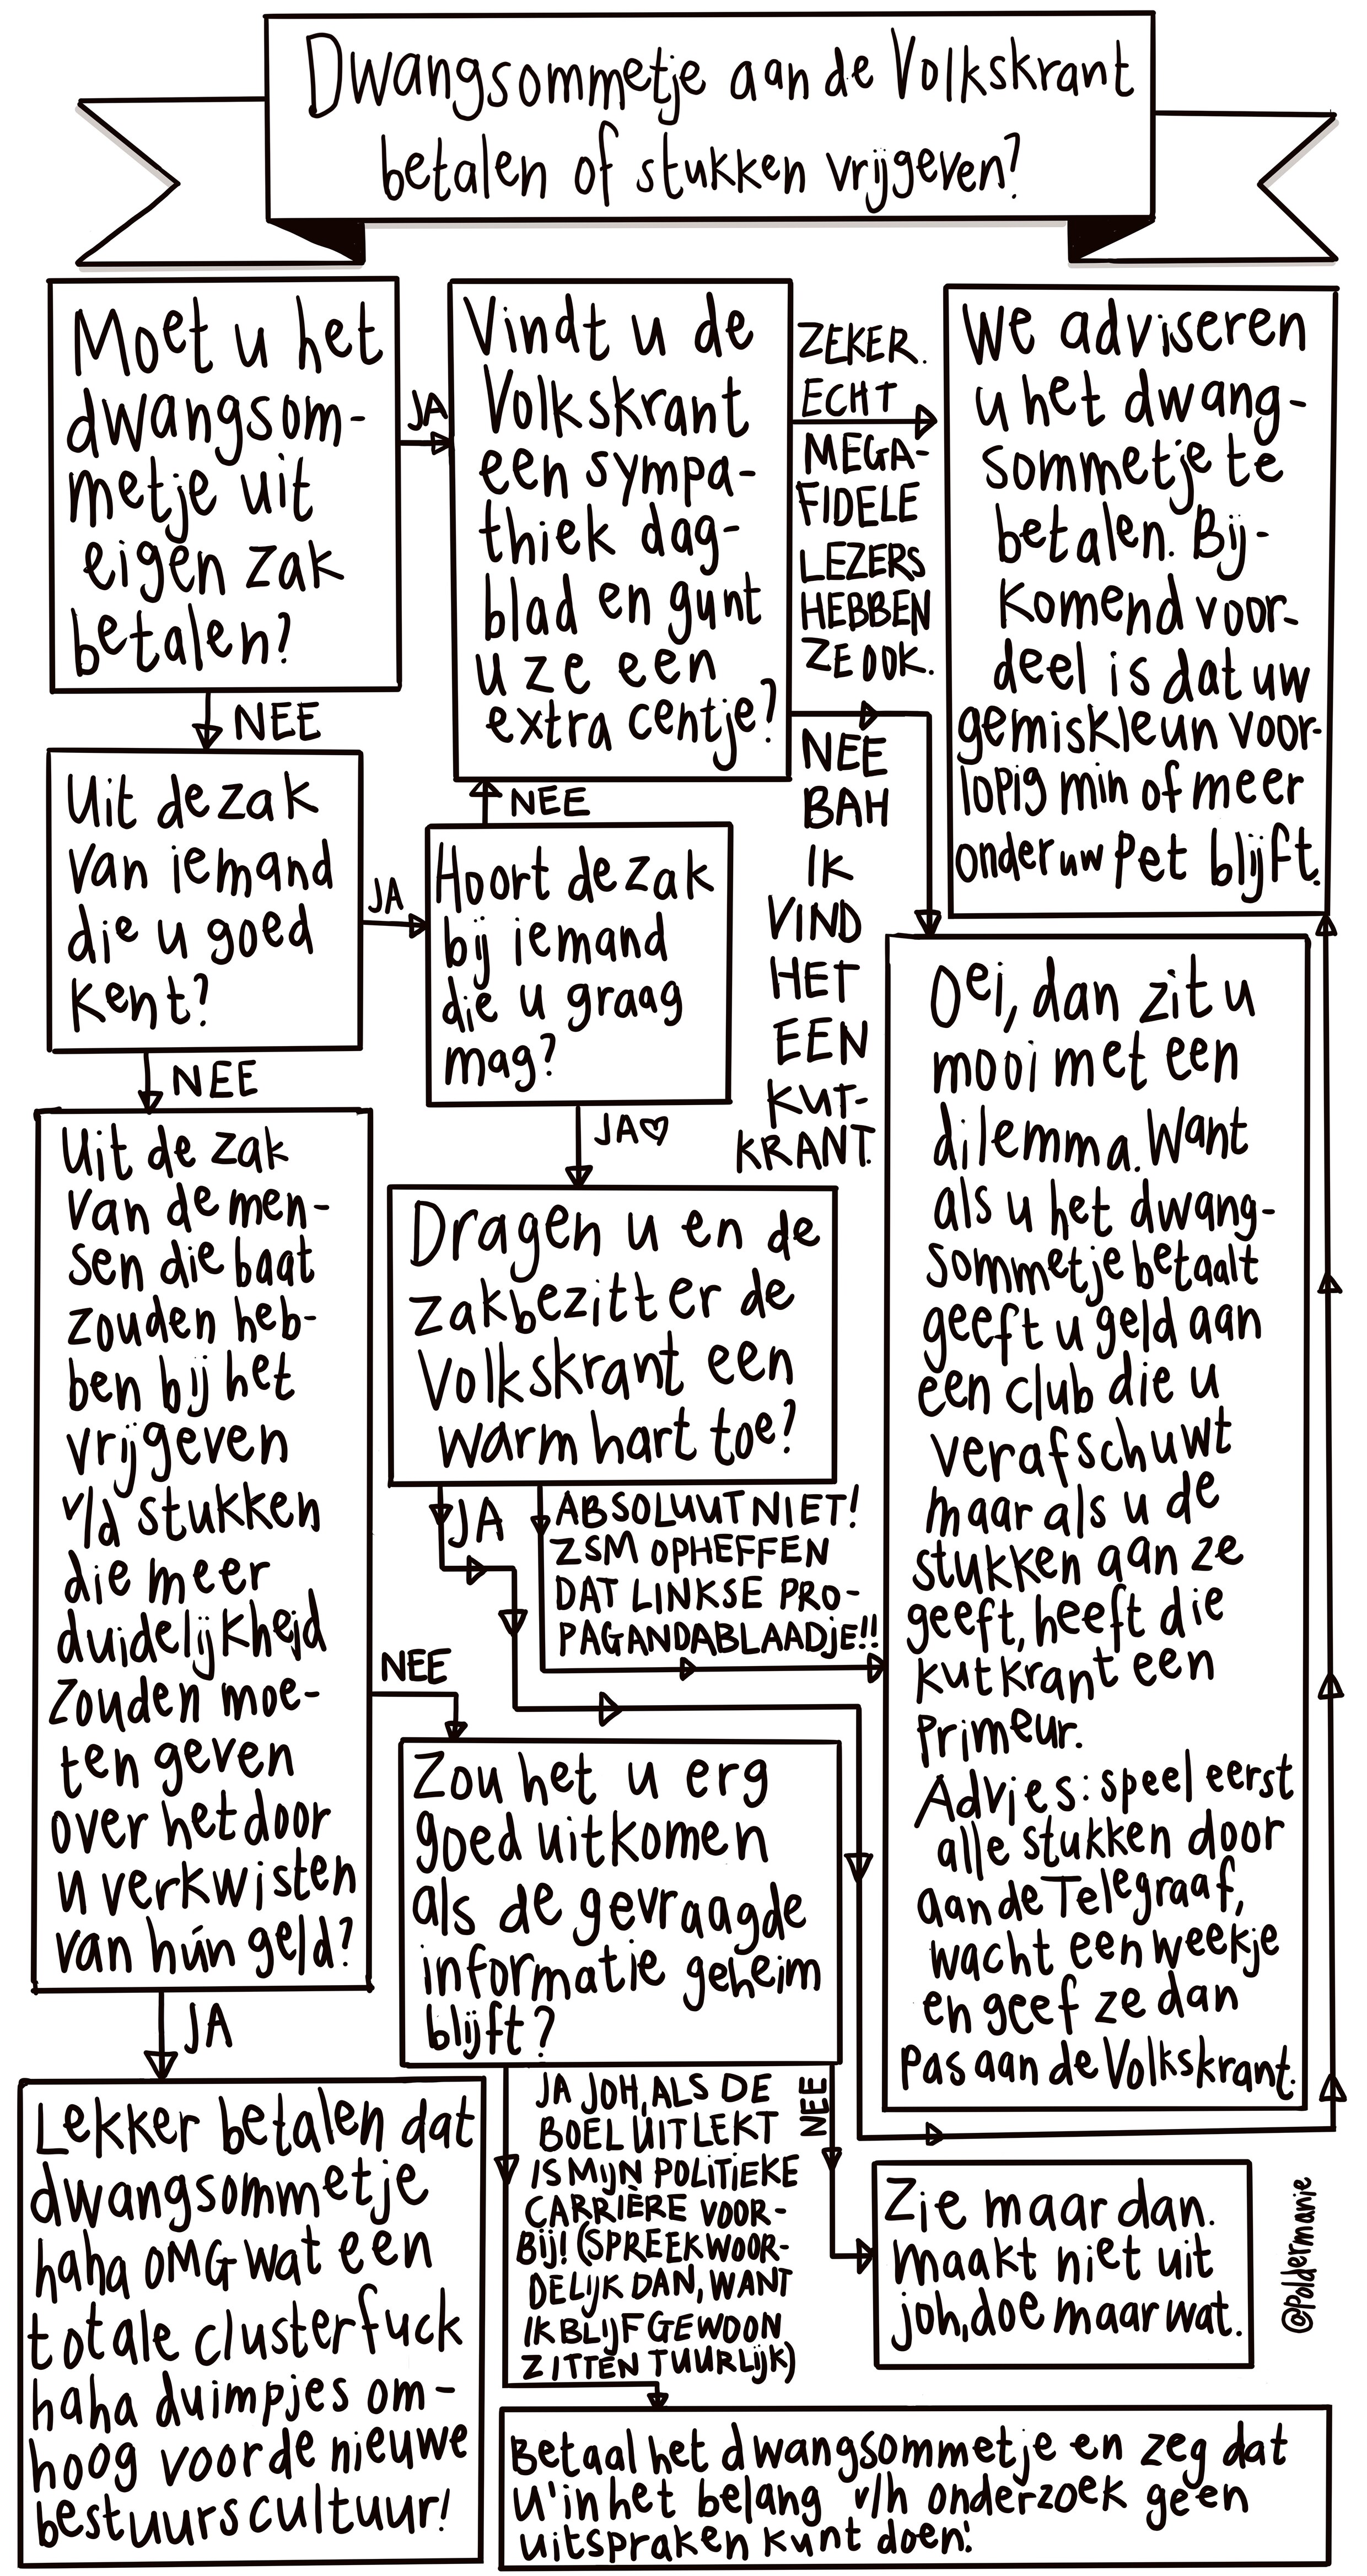 Dwangsommetje aan de Volkskrant
betalen of stukken vrijgeven?
Moet u het
dwangsom-
metje uit
eigen zak
betalen?
JA
NEE
Vindt u de
Volkskrant
een sympa-
thiek dag-
blad en gunt
u ze een
extra centje?
ZEKER.
ECHT
MEGA-
FIDELE
LEZERS
HEBBEN
ZE OOK.
NEE
BAH
IK
VIND
HET
EEN
KUT-
KRANT.
We adviseren
u het dwang-
sommetje te
betalen. Bij-
komend voor-
deel is dat uw
gemiskleun voor-
lopig min of meer
onder uw pet blijft.
Uit de zak
van iemand
die u goed
kent?
JA
NEE
Hoort de zak
bij iemand
die u graag
mag?
NEE
JA♡
Uit de zak
van de men-
sen die baat
zouden heb-
ben bij het
vrijgeven
v/d stukken
die meer
duidelijkheid
zouden moe-
ten geven
over het door
u verkwisten
van hún geld?
NEE
JA
Dragen u en de
zakbezitter de
Volkskrant een
warm hart toe?
JA
ABSOLUUT NIET!
ZSM OPHEFFEN
DAT LINKSE PRO-
PAGANDABLAADJE!!
Oei, dan zit u
mooi met een
dilemma. Want
als u het dwang-
sommetje betaalt
geeft u geld aan
een club die u
verafschuwt
maar als u de
stukken aan ze
geeft, heeft die
kutkrant een
primeur.
Advies: speel eerst
alle stukken door
aan de Telegraaf,
wacht een weekje
en geef ze dan
pas aan de Volkskrant.
Zou het u erg
goed uitkomen
als de gevraagde
informatie geheim
blijft?
JA JOH, ALS DE
BOEL UITLEKT
IS MIJN POLITIEKE
CARRIÈRE VOOR-
BIJ! (SPREEKWOOR-
DELIJK DAN, WANT
IK BLIJF GEWOON
ZITTEN TUURLIJK)
NEE
Zie maar dan.
maakt niet uit
joh, doe maar wat.
Lekker betalen dat
dwangsommetje
haha OMG wat een
totale clusterfuck
haha duimpjes om-
hoog voor de nieuwe
bestuurscultuur!
Betaal het dwangsommetje en zeg dat
u 'in het belang v/h onderzoek geen
uitspraken kunt doen'.
@poldermanie